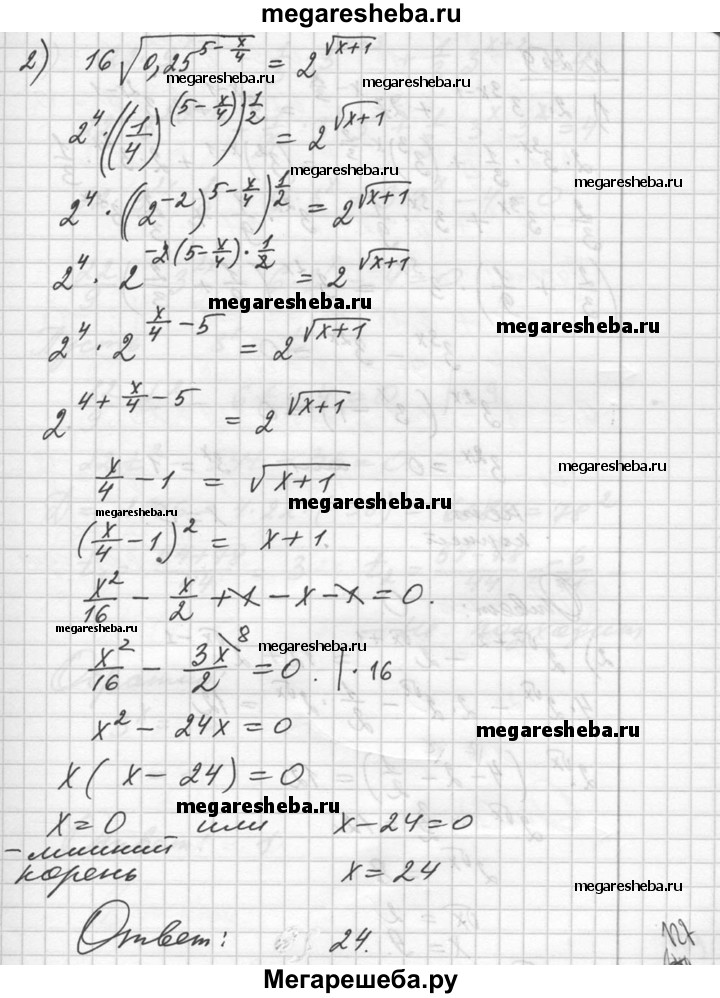 megaresheba.ru
2) 16√(0,25^(5 - x/4)) = 2^(√(x+1))
megaresheba.ru megaresheba.ru
2^4 · ((1/4)^(5 - x/4))^(1/2) = 2^(√(x+1))
megaresheba.ru megaresheba.ru
2^4 · ((2^(-2))^(5 - x/4))^(1/2) = 2^(√(x+1))
2^4 · 2^(-2(5 - x/4) · 1/2) = 2^(√(x+1))
megaresheba.ru megaresheba.ru
2^4 · 2^(x/4 - 5) = 2^(√(x+1))
2^(4 + x/4 - 5) = 2^(√(x+1))
megaresheba.ru
x/4 - 1 = √(x+1)
megaresheba.ru megaresheba.ru
(x/4 - 1)^2 = x+1.
x^2/16 - x/2 + 1 - x - 1 = 0.
megaresheba.ru megaresheba.ru
x^2/16 - 3x\8/2 = 0. | · 16
x^2 - 24x = 0
megaresheba.ru
x(x - 24) = 0
megaresheba.ru
x = 0 или x - 24 = 0
- лишний
корень x = 24
megaresheba.ru
Ответ: 24.
Мегарешеба.ру